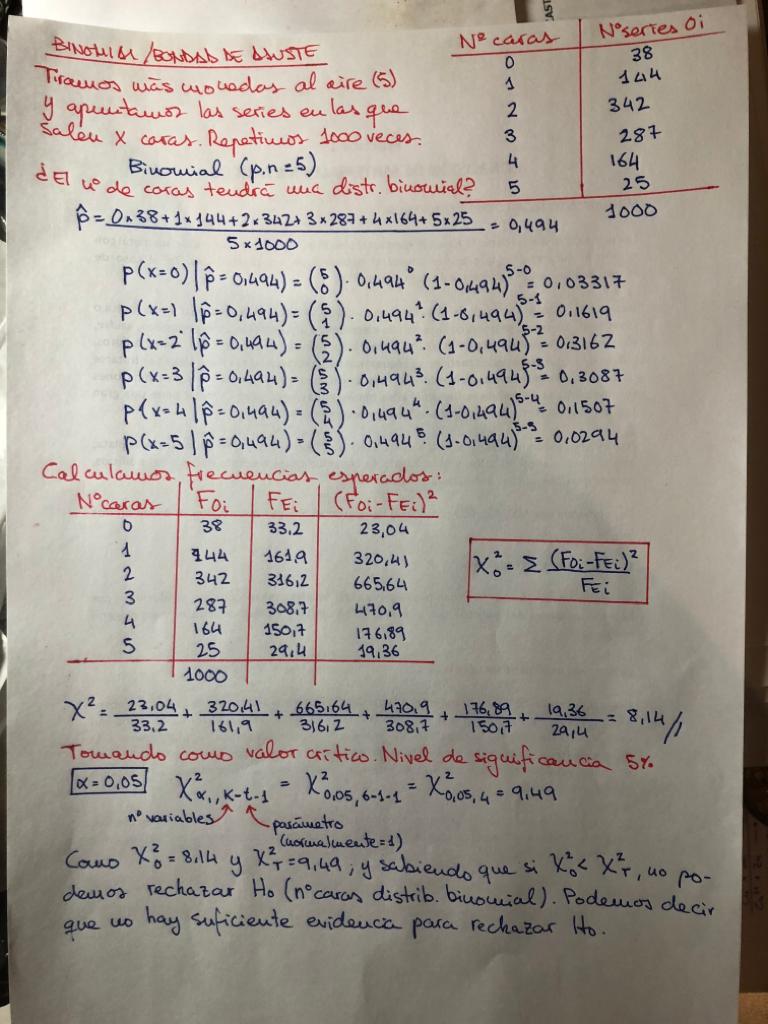 BINOMIAL/BONDAD DE AJUSTE
Tiramos más monedas al aire (5)
y apuntamos las series en las que
salen X caras. Repetimos 1000 veces.
Binomial (p,n=5)
¿El nº de caras tendrá una distr. binomial?
Nº caras | Nº series Oi
0 | 38
1 | 144
2 | 342
3 | 287
4 | 164
5 | 25
1000
p̂ = (0×38+1×144+2×342+3×287+4×164+5×25) / (5×1000) = 0,494
p(x=0)|p̂=0,494) = (5 0) · 0,494⁰ (1-0,494)⁵⁻⁰ = 0,03317
p(x=1 |p̂=0,494) = (5 1) · 0,494¹· (1-0,494)⁵⁻¹ = 0,1619
p(x=2 |p̂=0,494) = (5 2) · 0,494²· (1-0,494)⁵⁻² = 0,3162
p(x=3 |p̂=0,494) = (5 3) · 0,494³· (1-0,494)⁵⁻³ = 0,3087
p(x=4 |p̂=0,494) = (5 4) · 0,494⁴· (1-0,494)⁵⁻⁴ = 0,1507
p(x=5 |p̂=0,494) = (5 5) · 0,494⁵· (1-0,494)⁵⁻⁵ = 0,0294
Calculamos frecuencias esperadas:
Nº caras | FOi | FEi | (FOi-FEi)²
0 | 38 | 33,2 | 23,04
1 | 144 | 161,9 | 320,41
2 | 342 | 316,2 | 665,64
3 | 287 | 308,7 | 470,9
4 | 164 | 150,7 | 176,89
5 | 25 | 29,4 | 19,36
1000
χ₀² = Σ (FOi-FEi)² / FEi
χ² = 23,04/33,2 + 320,41/161,9 + 665,64/316,2 + 470,9/308,7 + 176,89/150,7 + 19,36/29,4 = 8,14//
Tomando como valor crítico. Nivel de significancia 5%
α=0,05 χ²α,, K-t-1 = χ²0,05, 6-1-1 = χ²0,05, 4 = 9,49
nº variables parámetro
(normalmente=1)
Como χ₀²=8,14 y χT²=9,49; y sabiendo que si χ₀² < χT², no po-
demos rechazar Ho (nº caras distrib. binomial). Podemos decir
que no hay suficiente evidencia para rechazar Ho.